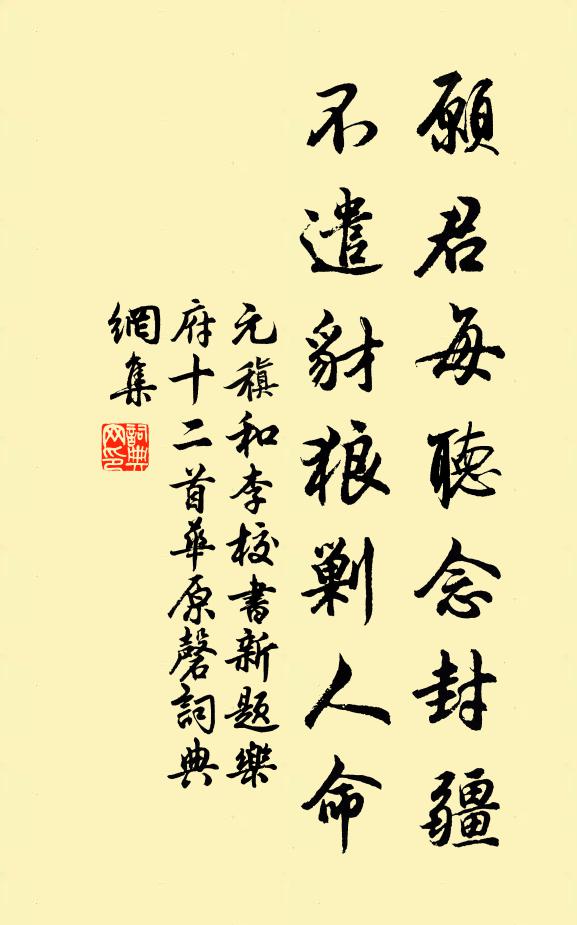 願君每聽念封疆
不遣豺狼剿人命
元稹和李校書新題樂
府十二首華原磬詞典
網集
詞典
网印